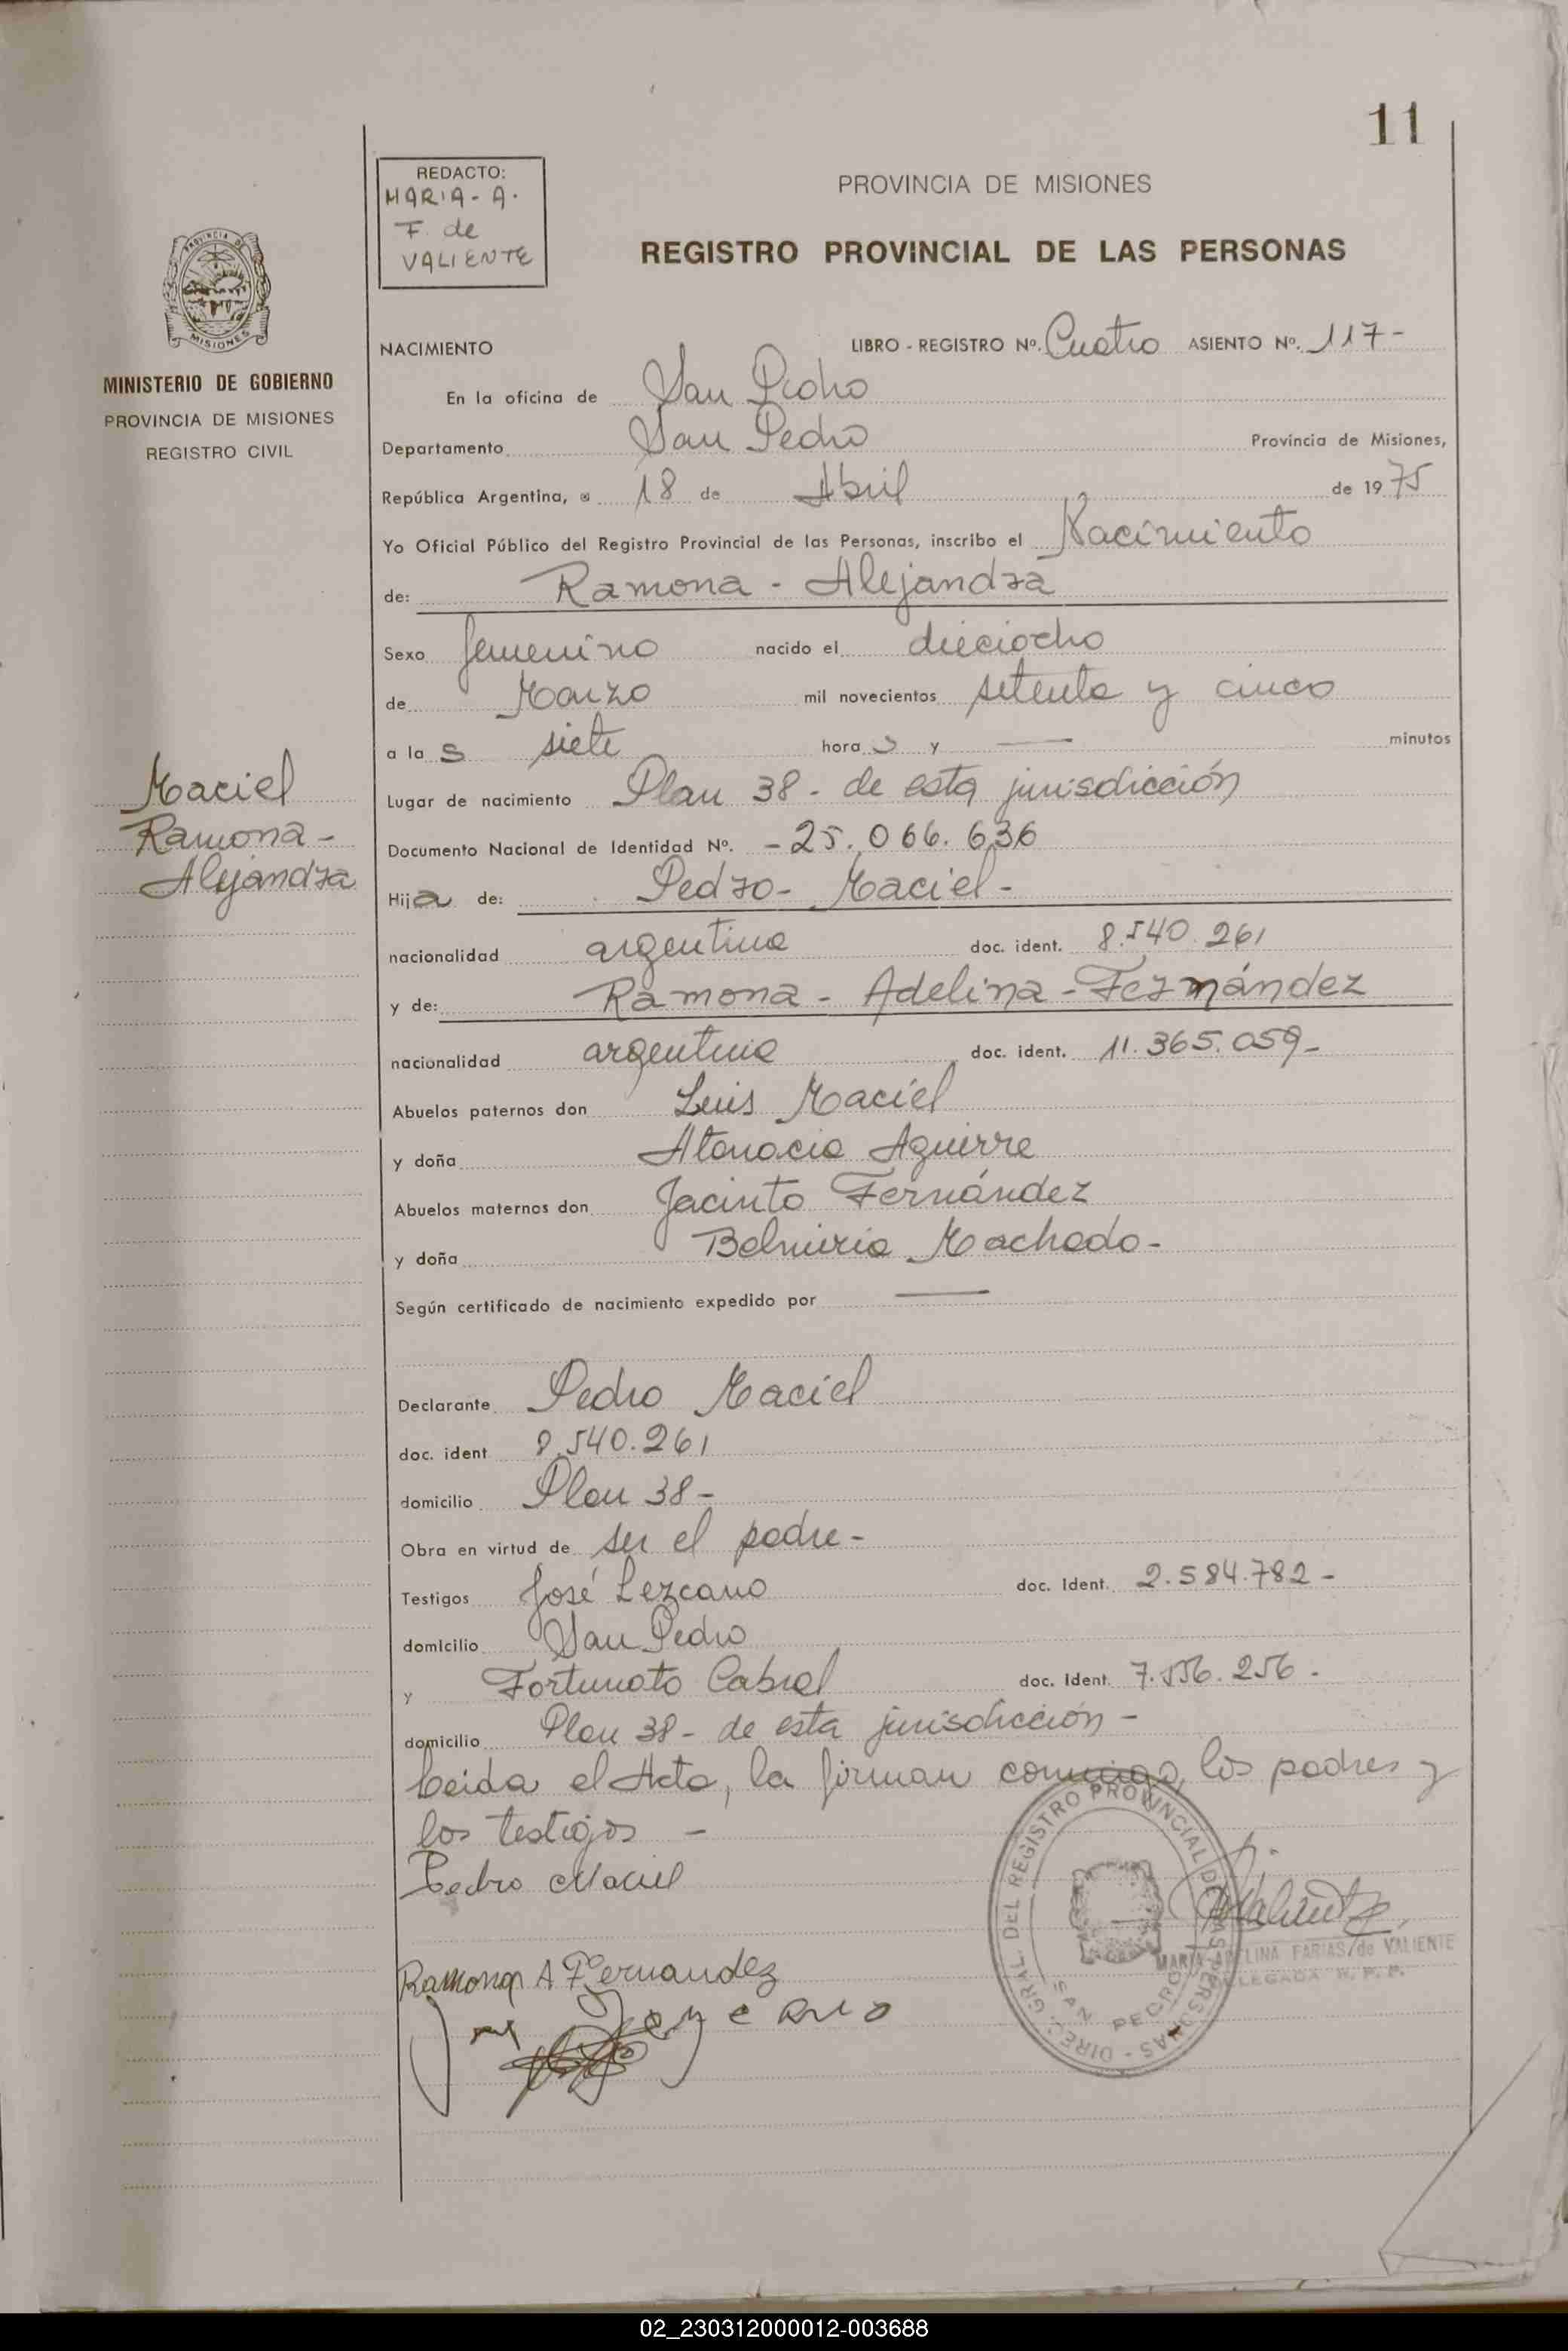 11
REDACTO:
MARIA - A.
F. de
VALIENTE
PROVINCIA DE MISIONES
REGISTRO PROVINCIAL DE LAS PERSONAS
PROVINCIA DE
MISIONES
MINISTERIO DE GOBIERNO
PROVINCIA DE MISIONES
REGISTRO CIVIL
NACIMIENTO LIBRO - REGISTRO Nº. Cuatro ASIENTO Nº. 117-
En la oficina de San Pedro
Departamento San Pedro Provincia de Misiones,
República Argentina, a 18 de Abril de 1975
Yo Oficial Público del Registro Provincial de las Personas, inscribo el Nacimiento
de: Ramona - Alejandra
Sexo femenino nacido el dieciocho
de Marzo mil novecientos setenta y cinco
a las siete horas y — minutos
Maciel
Ramona -
Alejandra
Lugar de nacimiento Plan 38 - de esta jurisdicción
Documento Nacional de Identidad Nº. - 25.066.636
Hija de: Pedro - Maciel -
nacionalidad argentina doc. ident. 8.540.261
y de: Ramona - Adelina - Fernández
nacionalidad argentina doc. ident. 11.365.059-
Abuelos paternos don Luis Maciel
y doña Atanacia Aguirre
Abuelos maternos don Jacinto Fernández
y doña Belmiria Machado -
Según certificado de nacimiento expedido por —
Declarante Pedro Maciel
doc. ident 8.540.261
domicilio Plan 38 -
Obra en virtud de ser el padre -
Testigos José Lezcano doc. Ident. 2.584.782 -
domicilio San Pedro
y Fortunato Cabral doc. Ident. 7.556.256 -
domicilio Plan 38 - de esta jurisdicción -
Leida el Acta, la firman conmigo, los padres y
los testigos -
Pedro Maciel
Ramona A Fernandez
José Lezcano
DIREC. GRAL. DEL REGISTRO PROVINCIAL DE LAS PERSONAS -
SAN PEDRO
MARIA ADELINA FARIAS de VALIENTE
DELEGADA R. P. P.
02_230312000012-003688